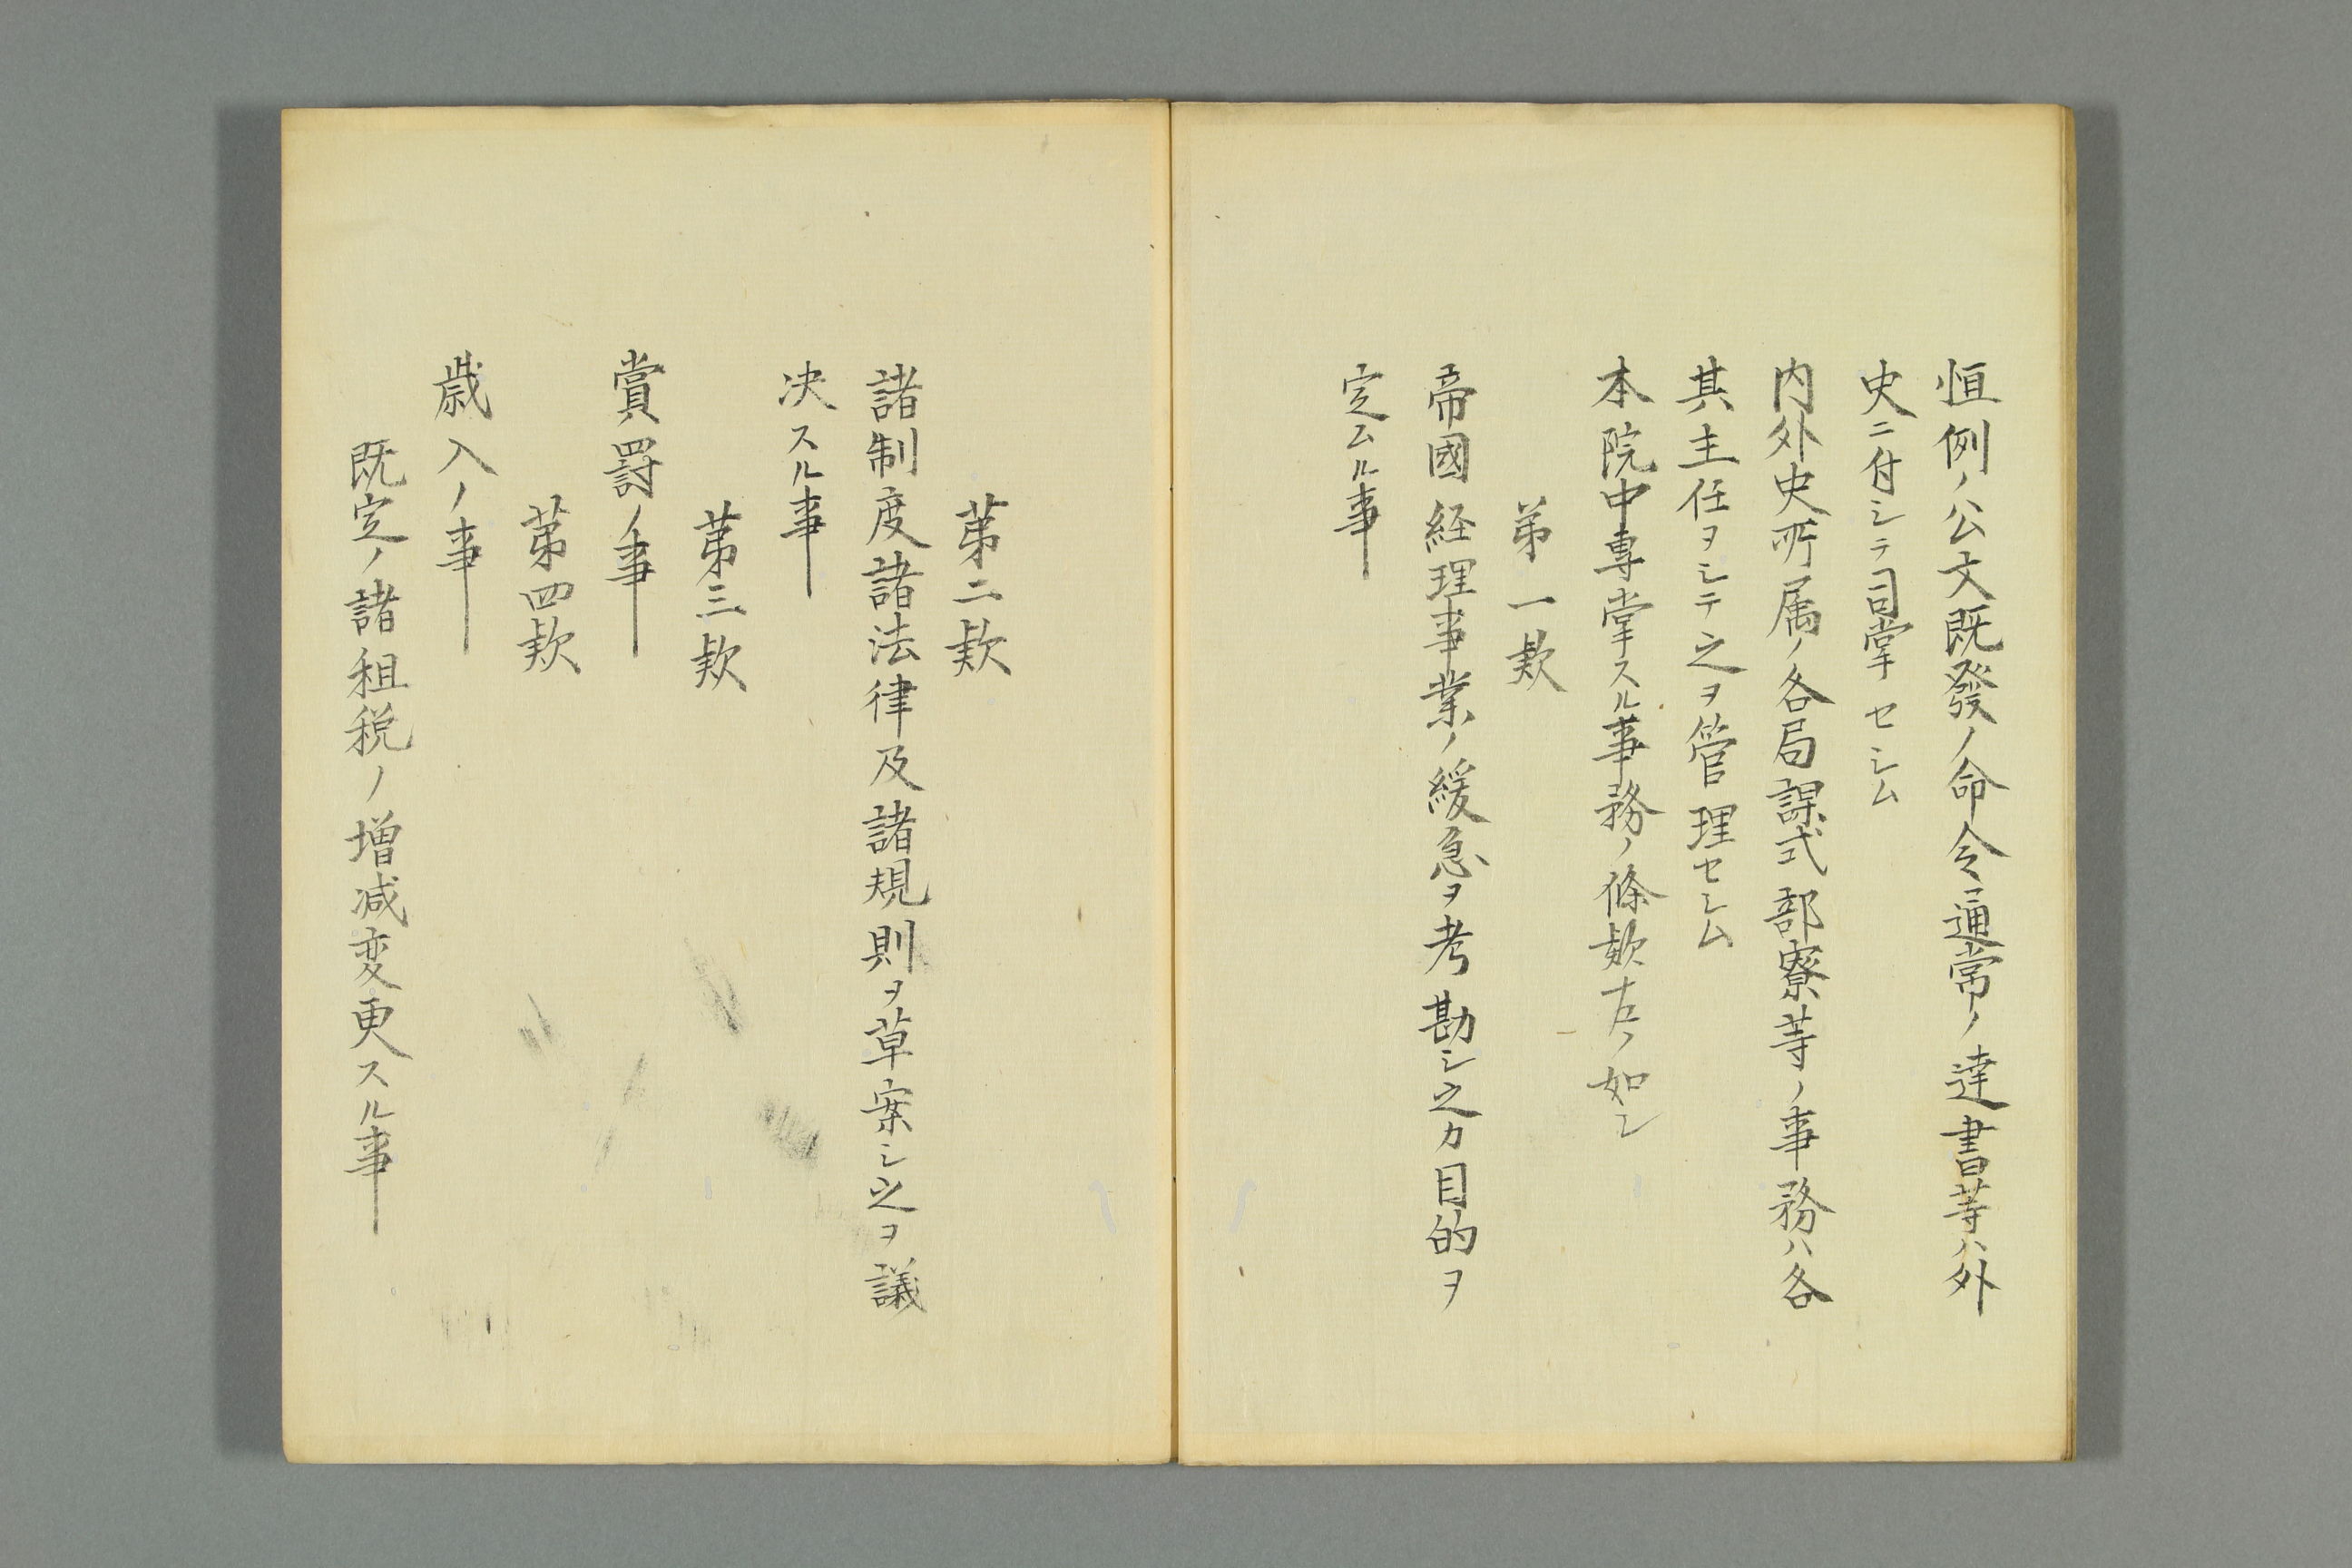 恒例ノ公文既發ノ命令通常ノ達書等ハ外
史ニ付シテ司掌セシム
内外史所属ノ各局課式部寮等ノ事務ハ各
其主任ヲシテ之ヲ管理セシム
本院中専掌スル事務ノ條欵左ノ如シ
第一欵
帝國経理事業ノ緩急ヲ考勘シ之カ目的ヲ
定ムル事
第二欵
諸制度諸法律及諸規則ヲ草案シ之ヲ議
决スル事
第三欵
賞罸ノ事
第四欵
歳入ノ事
既定ノ諸租税ノ増减変更スル事